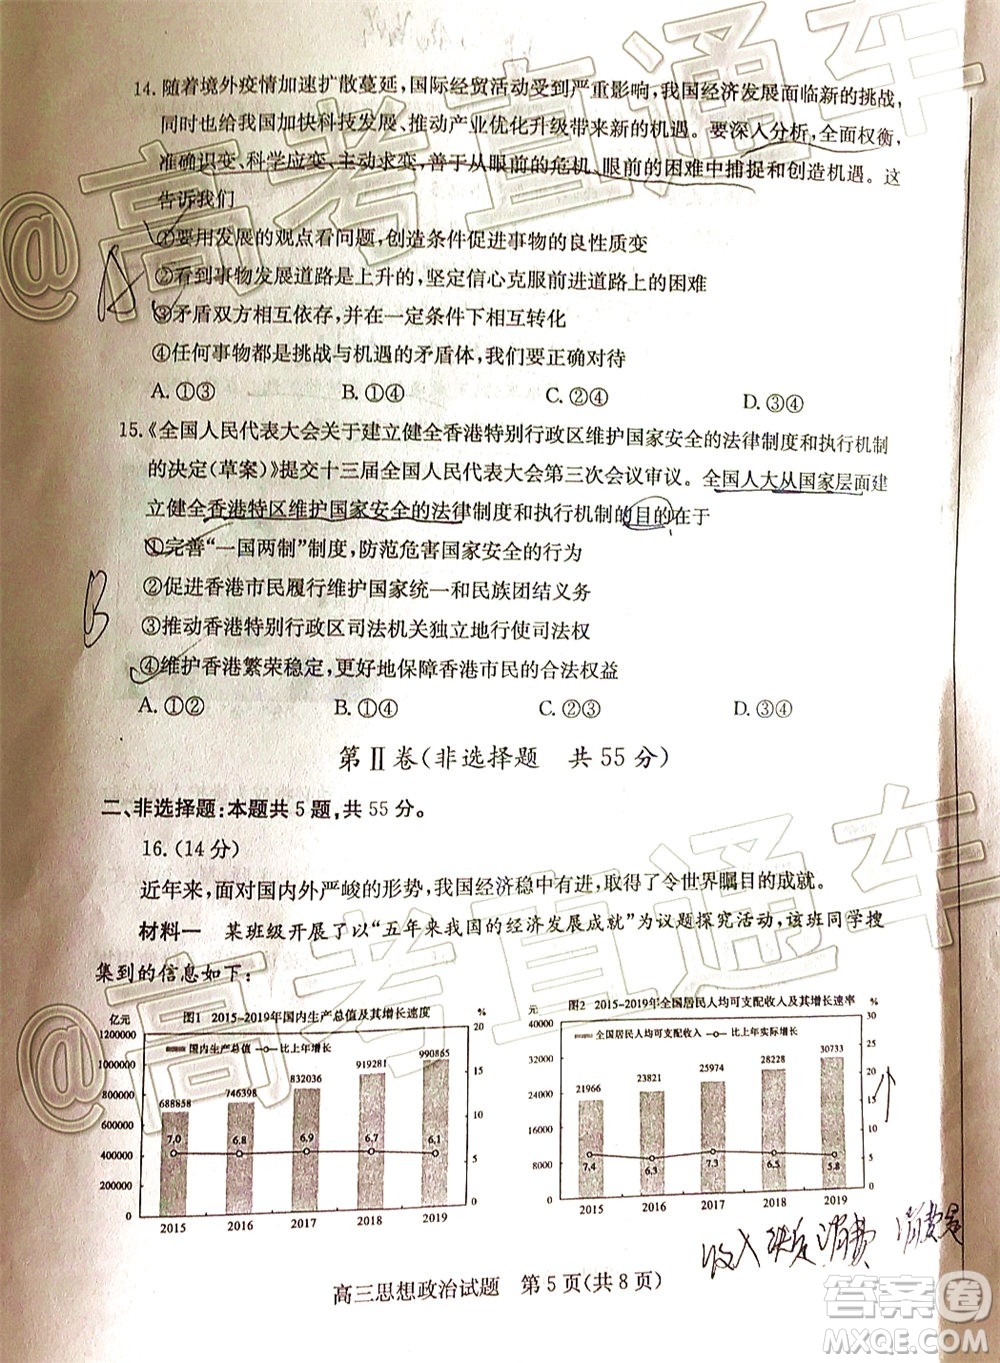 14. 随着境外疫情加速扩散蔓延，国际经贸活动受到严重影响，我国经济发展面临新的挑战，
同时也给我国加快科技发展、推动产业优化升级带来新的机遇。要深入分析，全面权衡，
准确识变、科学应变、主动求变，善于从眼前的危机、眼前的困难中捕捉和创造机遇。这
告诉我们
①要用发展的观点看问题，创造条件促进事物的良性质变
A
②看到事物发展道路是上升的，坚定信心克服前进道路上的困难
③矛盾双方相互依存，并在一定条件下相互转化
④任何事物都是挑战与机遇的矛盾体，我们要正确对待
A. ①③ B. ①④ C. ②④ D. ③④
15.《全国人民代表大会关于建立健全香港特别行政区维护国家安全的法律制度和执行机制
的决定(草案)》提交十三届全国人民代表大会第三次会议审议。全国人大从国家层面建
立健全香港特区维护国家安全的法律制度和执行机制的目的在于
①完善“一国两制”制度，防范危害国家安全的行为
②促进香港市民履行维护国家统一和民族团结义务
B
③推动香港特别行政区司法机关独立地行使司法权
④维护香港繁荣稳定，更好地保障香港市民的合法权益
A. ①② B. ①④ C. ②③ D. ③④
第Ⅱ卷(非选择题 共 55 分)
二、非选择题：本题共 5 题，共 55 分。
16. (14 分)
近年来，面对国内外严峻的形势，我国经济稳中有进，取得了令世界瞩目的成就。
材料一 某班级开展了以“五年来我国的经济发展成就”为议题探究活动，该班同学搜
集到的信息如下：
亿元 图1 2015-2019年国内生产总值及其增长速度 %
国内生产总值 比上年增长
1200000
1000000
800000
600000
400000
200000
0
688858 746398 832036 919281 990865
7.0 6.8 6.9 6.7 6.1
20
15
10
5
0
2015 2016 2017 2018 2019
元 图2 2015-2019年全国居民人均可支配收入及其增长速率 %
全国居民人均可支配收入 比上年实际增长
40000
32000
24000
16000
8000
0
21966 23821 25974 28228 30733
7.4 6.3 7.3 6.5 5.8
30
25
20
15
10
5
0
2015 2016 2017 2018 2019
收入决定消费
高三思想政治试题 第 5 页(共 8 页)
@高考直通车
@高考直通车
答案圈
MXQE.COM